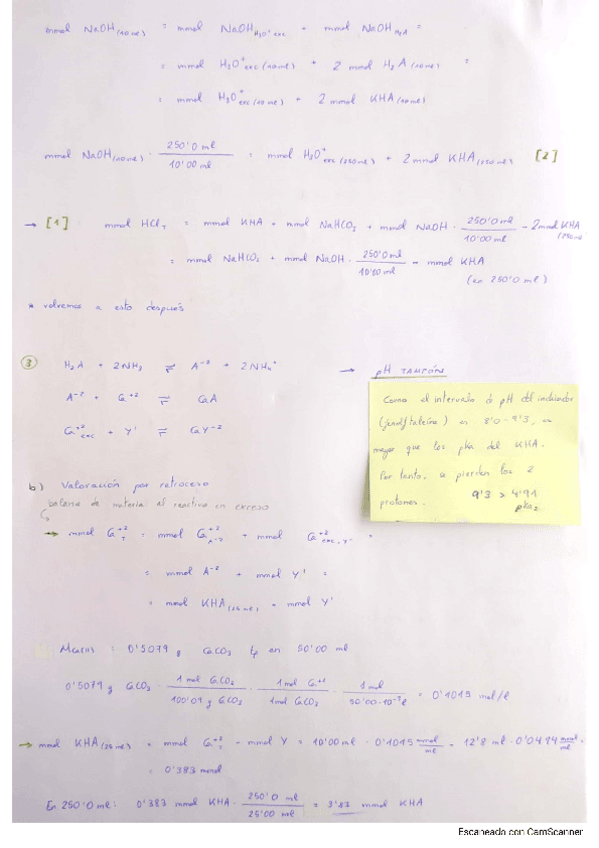 mmol NaOH (10 ml) = mmol NaOH H3O+ exc + mmol NaOH H2A =
= mmol H3O+ exc (10 ml) + 2 mmol H2A (10 ml) =
= mmol H3O+ exc (10 ml) + 2 mmol KHA (10 ml)
mmol NaOH (10 ml) · 250'0 ml / 10'00 ml = mmol H3O+ exc (250 ml) + 2 mmol KHA (250 ml) [2]
→ [1] mmol HCl T = mmol KHA + mmol NaHCO3 + mmol NaOH · 250'0 ml / 10'00 ml - 2 mmol KHA (250 ml)
= mmol NaHCO3 + mmol NaOH · 250'0 ml / 10'00 ml - mmol KHA
(en 250'0 ml)
* volvemos a esto después
③ H2A + 2NH3 ⇌ A-2 + 2NH4+ → pH TAMPÓN
A-2 + Ca+2 ⇌ CaA
Ca+2 exc + Y' ⇌ CaY-2
Como el intervalo de pH del indicador
(fenolftaleína) es 8'0 - 9'3, es
mayor que los pKa del KHA.
Por tanto, se pierden los 2
protones. 9'3 > 4'91
pKa2
b) Valoración por retroceso
balance de materia al reactivo en exceso
→ mmol Ca+2 T = mmol Ca+2 A-2 + mmol Ca+2 exc, Y' =
= mmol A-2 + mmol Y' =
= mmol KHA (25 ml) + mmol Y'
: 0'5079 g CaCO3 en 50'00 ml
0'5079 g CaCO3 · 1 mol CaCO3 / 100'09 g CaCO3 · 1 mol Ca+2 / 1 mol CaCO3 · 1 / 50'00·10-3 l = 0'1015 mol/l
→ mmol KHA (25 ml) = mmol Ca+2 T - mmol Y = 10'00 ml · 0'1015 mmol/ml - 12'8 ml · 0'0494 mmol/ml =
= 0'383 mmol
En 250'0 ml: 0'383 mmol KHA · 250'0 ml / 25'00 ml = 3'83 mmol KHA
Escaneado con CamScanner